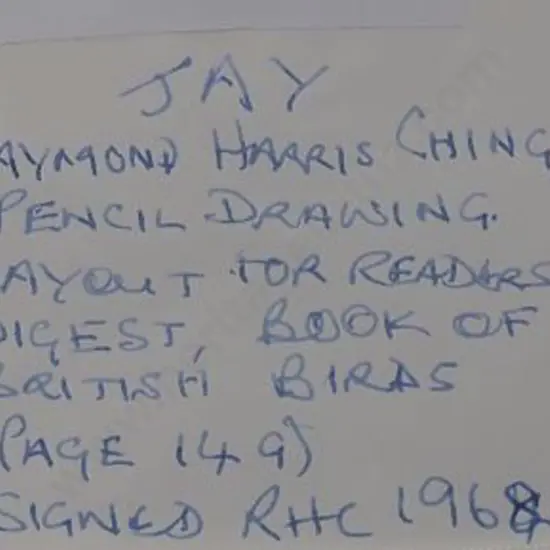 JAY
AYMOND HARRIS CHING
PENCIL DRAWING.
AYOUT FOR READERS
DIGEST, BOOK OF
BRITISH BIRDS
(PAGE 149)
SIGNED RHC 1968